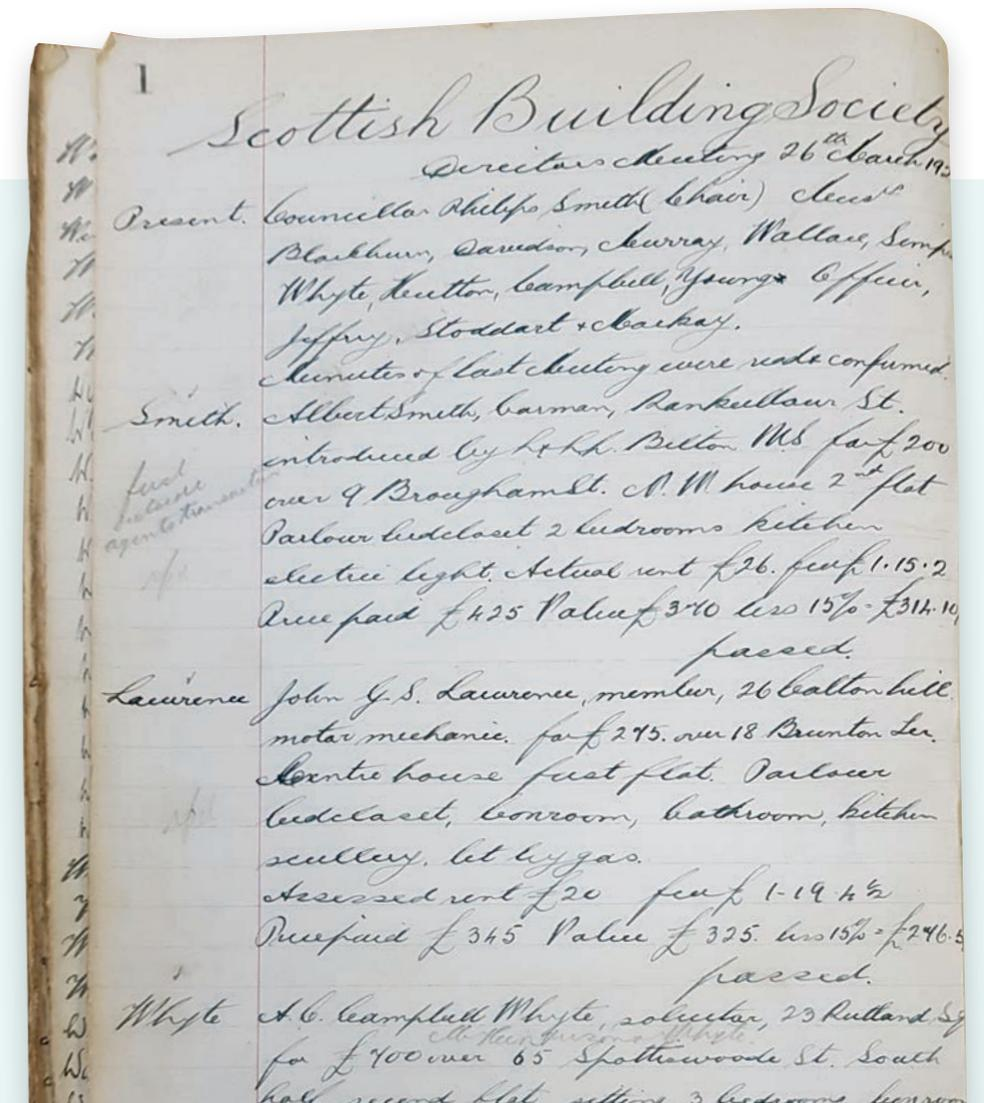 1
Scottish Building Society
Directors Meeting 26th March 19
Present. Councillor Philips Smith (Chair) Messrs
Blackburn, Davidson, Murray, Wallace, Simps
Whyte, Hutton, Campbell, Young Officer,
Jeffrey, Stoddart + Mackay.
Minutes of last Meeting were read & confirmed.
Smith. Albert Smith, Carman, Rankeillour St.
introduced by Belton M.S for £200
over 9 Brougham St. N. M. house 2nd flat
first
outside
agents transaction
Parlour bedcloset 2 bedrooms kitchen
electric light. Actual rent £26. feu £1.15.2
Price paid £425 Value £370 less 15% = £314.10
passed.
Lawrence John G. S. Lawrence, member, 26 Calton hill
motor mechanic. for £275. over 18 Brunton Ter.
Centre house first flat. Parlour
bedcloset, boxroom, bathroom, kitchen
scullery. lit by gas.
Assessed rent £20 feu £1-19.4½
Price paid £345 Value £325. less 15% = £276.5
passed.
Whyte A. C. Campbell Whyte, solicitor, 23 Rutland Sq
for £700 over 65 Spottiswoode St. South
half second flat sitting 3 bedrooms boxroom